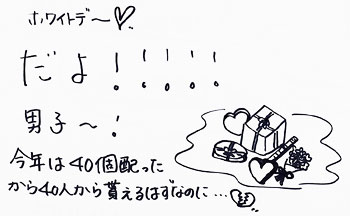 ホワイトデ〜♡
だよ!!!!!
男子〜!
今年は40個配った
から40人から貰えるはずなのに…